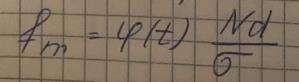 f_m = φ(t) Nd/σ